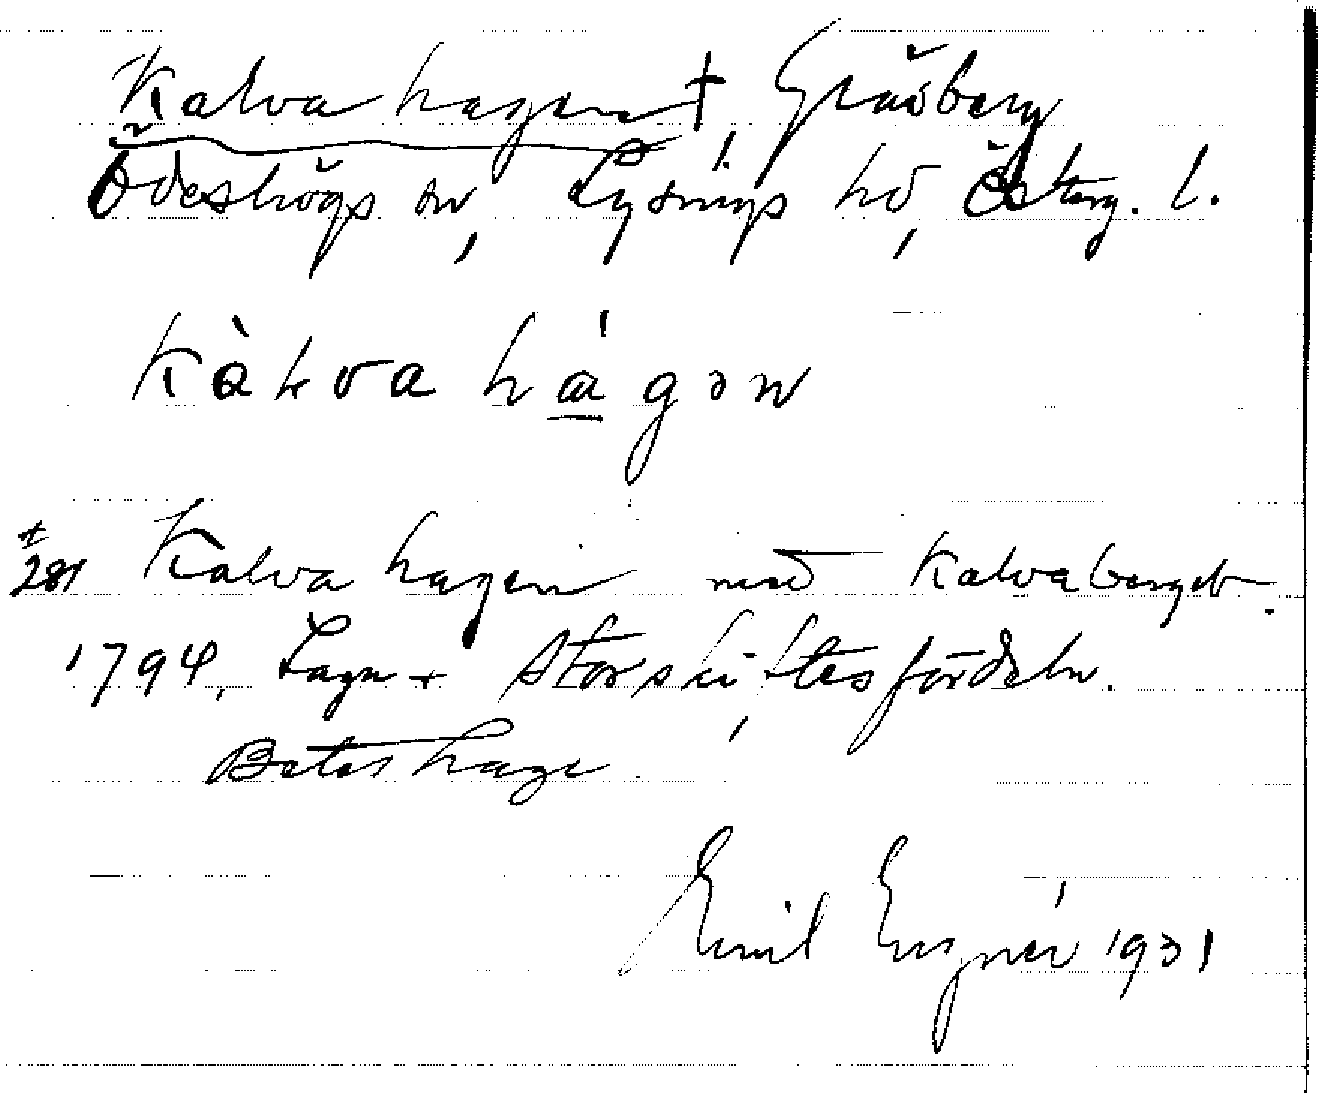 Kalvahagen †, Gråberg
Ödeshögs sn, Lysings hd, Österg. l.
Kàlvahágən
± 281 Kalvahagen med Kalvaberget.
1794, Laga Storskiftesfördeln.
Beteshage
Emil Engnér 1931